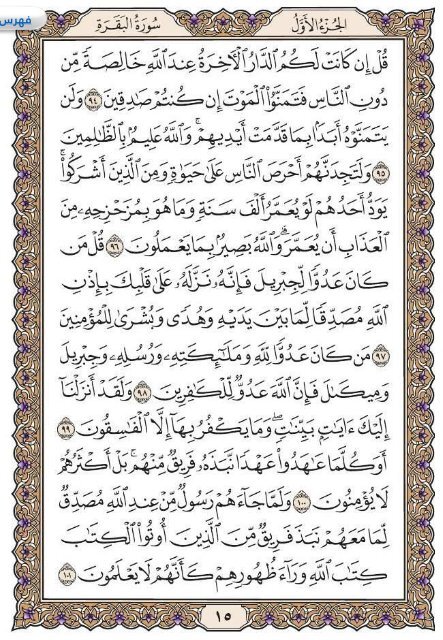 فهرس
الجُزْءُ الأَوَّلُ
سُورَةُ البَقَرَةِ
قُلْ إِن كَانَتْ لَكُمُ ٱلدَّارُ ٱلْأَخِرَةُ عِندَ ٱللَّهِ خَالِصَةً مِّن
دُونِ ٱلنَّاسِ فَتَمَنَّوُا۟ ٱلْمَوْتَ إِن كُنتُمْ صَٰدِقِينَ ٩٤ وَلَن
يَتَمَنَّوْهُ أَبَدَۢا بِمَا قَدَّمَتْ أَيْدِيهِمْ ۚ وَٱللَّهُ عَلِيمُۢ بِٱلظَّٰلِمِينَ
٩٥ وَلَتَجِدَنَّهُمْ أَحْرَصَ ٱلنَّاسِ عَلَىٰ حَيَوٰةٍ وَمِنَ ٱلَّذِينَ أَشْرَكُوا۟ ۚ
يَوَدُّ أَحَدُهُمْ لَوْ يُعَمَّرُ أَلْفَ سَنَةٍ وَمَا هُوَ بِمُزَحْزِحِهِۦ مِنَ
ٱلْعَذَابِ أَن يُعَمَّرَ ۗ وَٱللَّهُ بَصِيرُۢ بِمَا يَعْمَلُونَ ٩٦ قُلْ مَن
كَانَ عَدُوًّا لِّجِبْرِيلَ فَإِنَّهُۥ نَزَّلَهُۥ عَلَىٰ قَلْبِكَ بِإِذْنِ
ٱللَّهِ مُصَدِّقًا لِّمَا بَيْنَ يَدَيْهِ وَهُدًى وَبُشْرَىٰ لِلْمُؤْمِنِينَ
٩٧ مَن كَانَ عَدُوًّا لِّلَّهِ وَمَلَٰٓئِكَتِهِۦ وَرُسُلِهِۦ وَجِبْرِيلَ
وَمِيكَىٰلَ فَإِنَّ ٱللَّهَ عَدُوٌّ لِّلْكَٰفِرِينَ ٩٨ وَلَقَدْ أَنزَلْنَآ
إِلَيْكَ ءَايَٰتٍۭ بَيِّنَٰتٍ ۖ وَمَا يَكْفُرُ بِهَآ إِلَّا ٱلْفَٰسِقُونَ ٩٩
أَوَكُلَّمَا عَٰهَدُوا۟ عَهْدًا نَّبَذَهُۥ فَرِيقٌ مِّنْهُم ۚ بَلْ أَكْثَرُهُمْ
لَا يُؤْمِنُونَ ١٠٠ وَلَمَّا جَآءَهُمْ رَسُولٌ مِّنْ عِندِ ٱللَّهِ مُصَدِّقٌ
لِّمَا مَعَهُمْ نَبَذَ فَرِيقٌ مِّنَ ٱلَّذِينَ أُوتُوا۟ ٱلْكِتَٰبَ
كِتَٰبَ ٱللَّهِ وَرَآءَ ظُهُورِهِمْ كَأَنَّهُمْ لَا يَعْلَمُونَ ١٠١
١٥